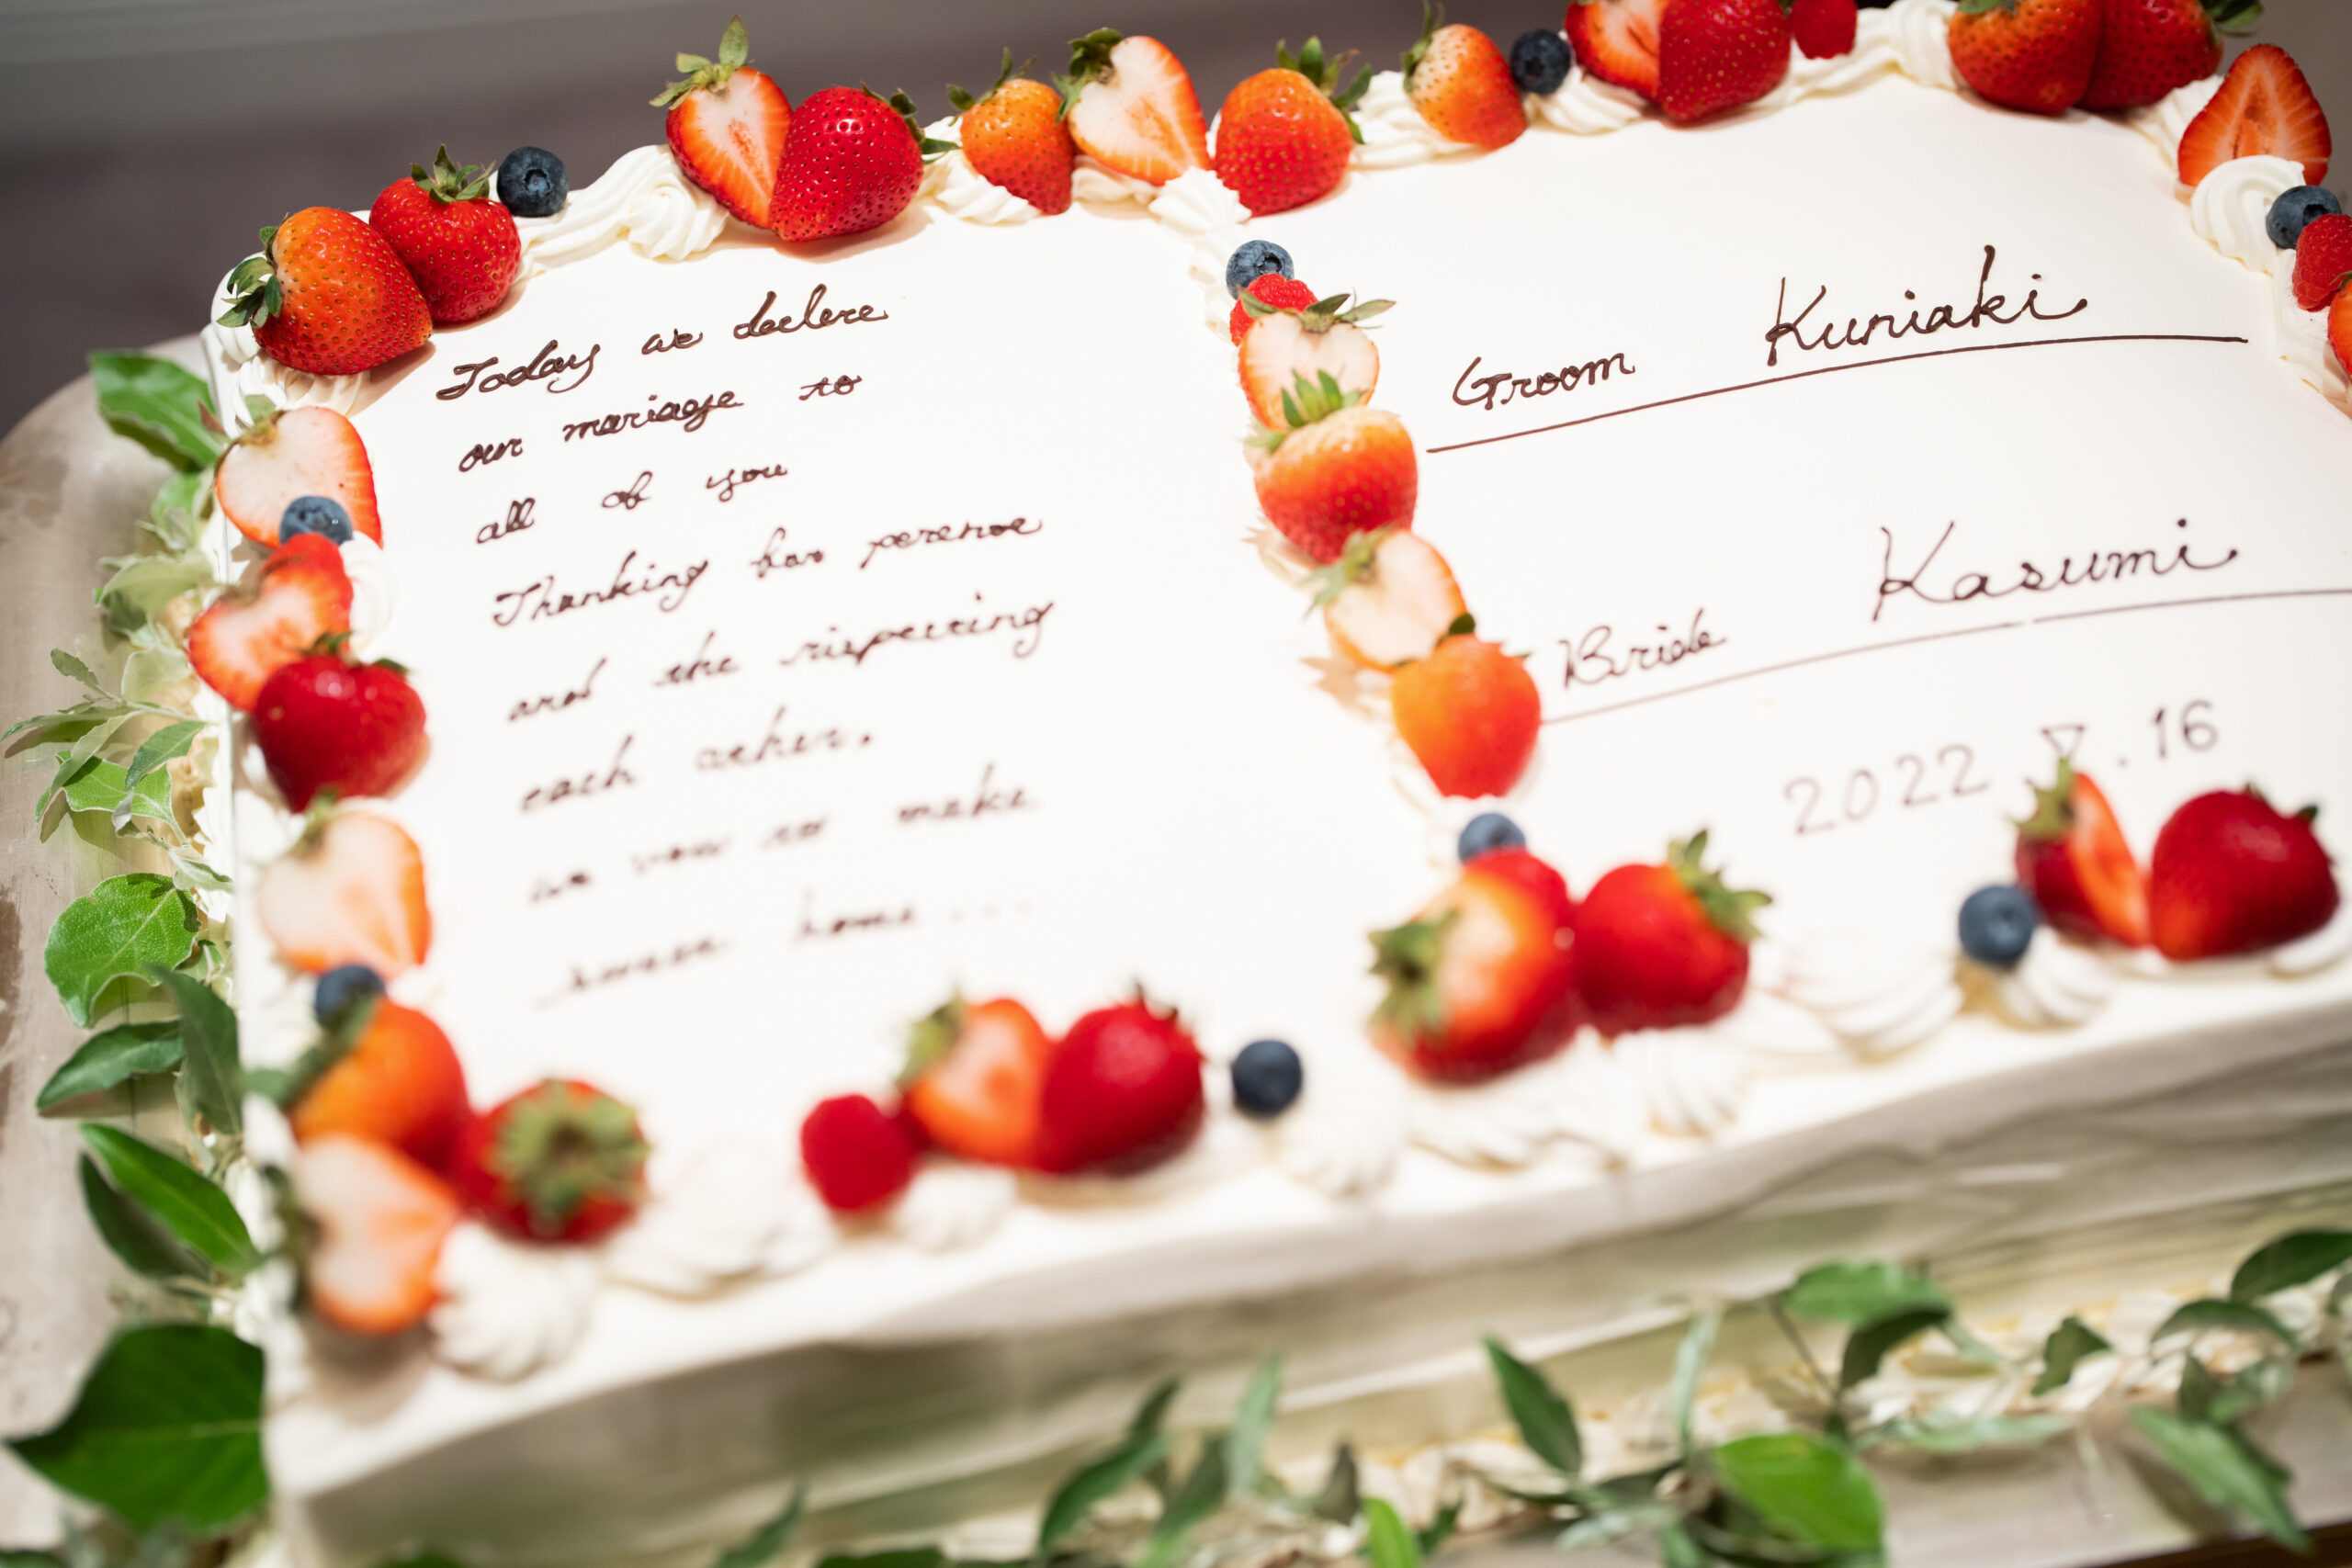 Today we declere
our mariage to
all of you
Thanking for perense
and the rispecting
each other.
we vow to make
sweet home...
Groom Kuniaki
Bride Kasumi
2022 V. 16